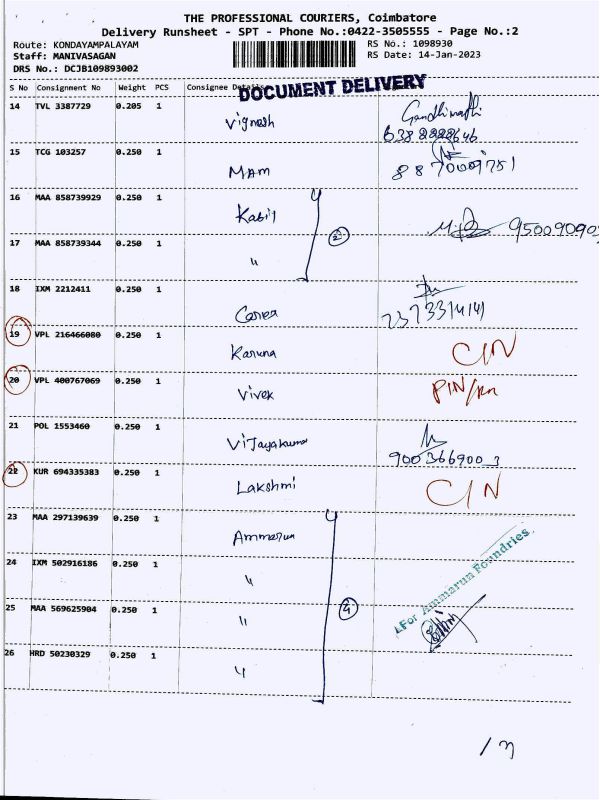 THE PROFESSIONAL COURIERS, Coimbatore
Delivery Runsheet - SPT - Phone No.:0422-3505555 - Page No.:2
Route: KONDAYAMPALAYAM RS No.: 1098930
Staff: MANIVASAGAN RS Date: 14-Jan-2023
DRS No.: DCJB109893002
S No Consignment No Weight PCS Consignee Details
DOCUMENT DELIVERY
14 TVL 3387729 0.205 1 Vignesh
15 TCG 103257 0.250 1 MAM 8870009751
16 MAA 858739929 0.250 1 Kabil
2
17 MAA 858739344 0.250 1 "
18 IXM 2212411 0.250 1
19 VPL 216466080 0.250 1 Karuna C/N
20 VPL 400767069 0.250 1 Vivek
21 POL 1553460 0.250 1 Vijayakumar 9003669003
22 KUR 694335383 0.250 1 Lakshmi C/N
23 MAA 297139639 0.250 1 Ammarun
24 IXM 502916186 0.250 1 "
For Ammarun Foundries
25 MAA 569625904 0.250 1 "
4
26 HRD 50230329 0.250 1 "